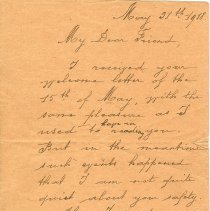 May 21th 1918
My Dear Friend,
I received your
welcome letter of the
15th of May, with the
same pleasure as I
hope
used to you.
But in the meantime
such events happened
that I am not quite
quiet about you safety.